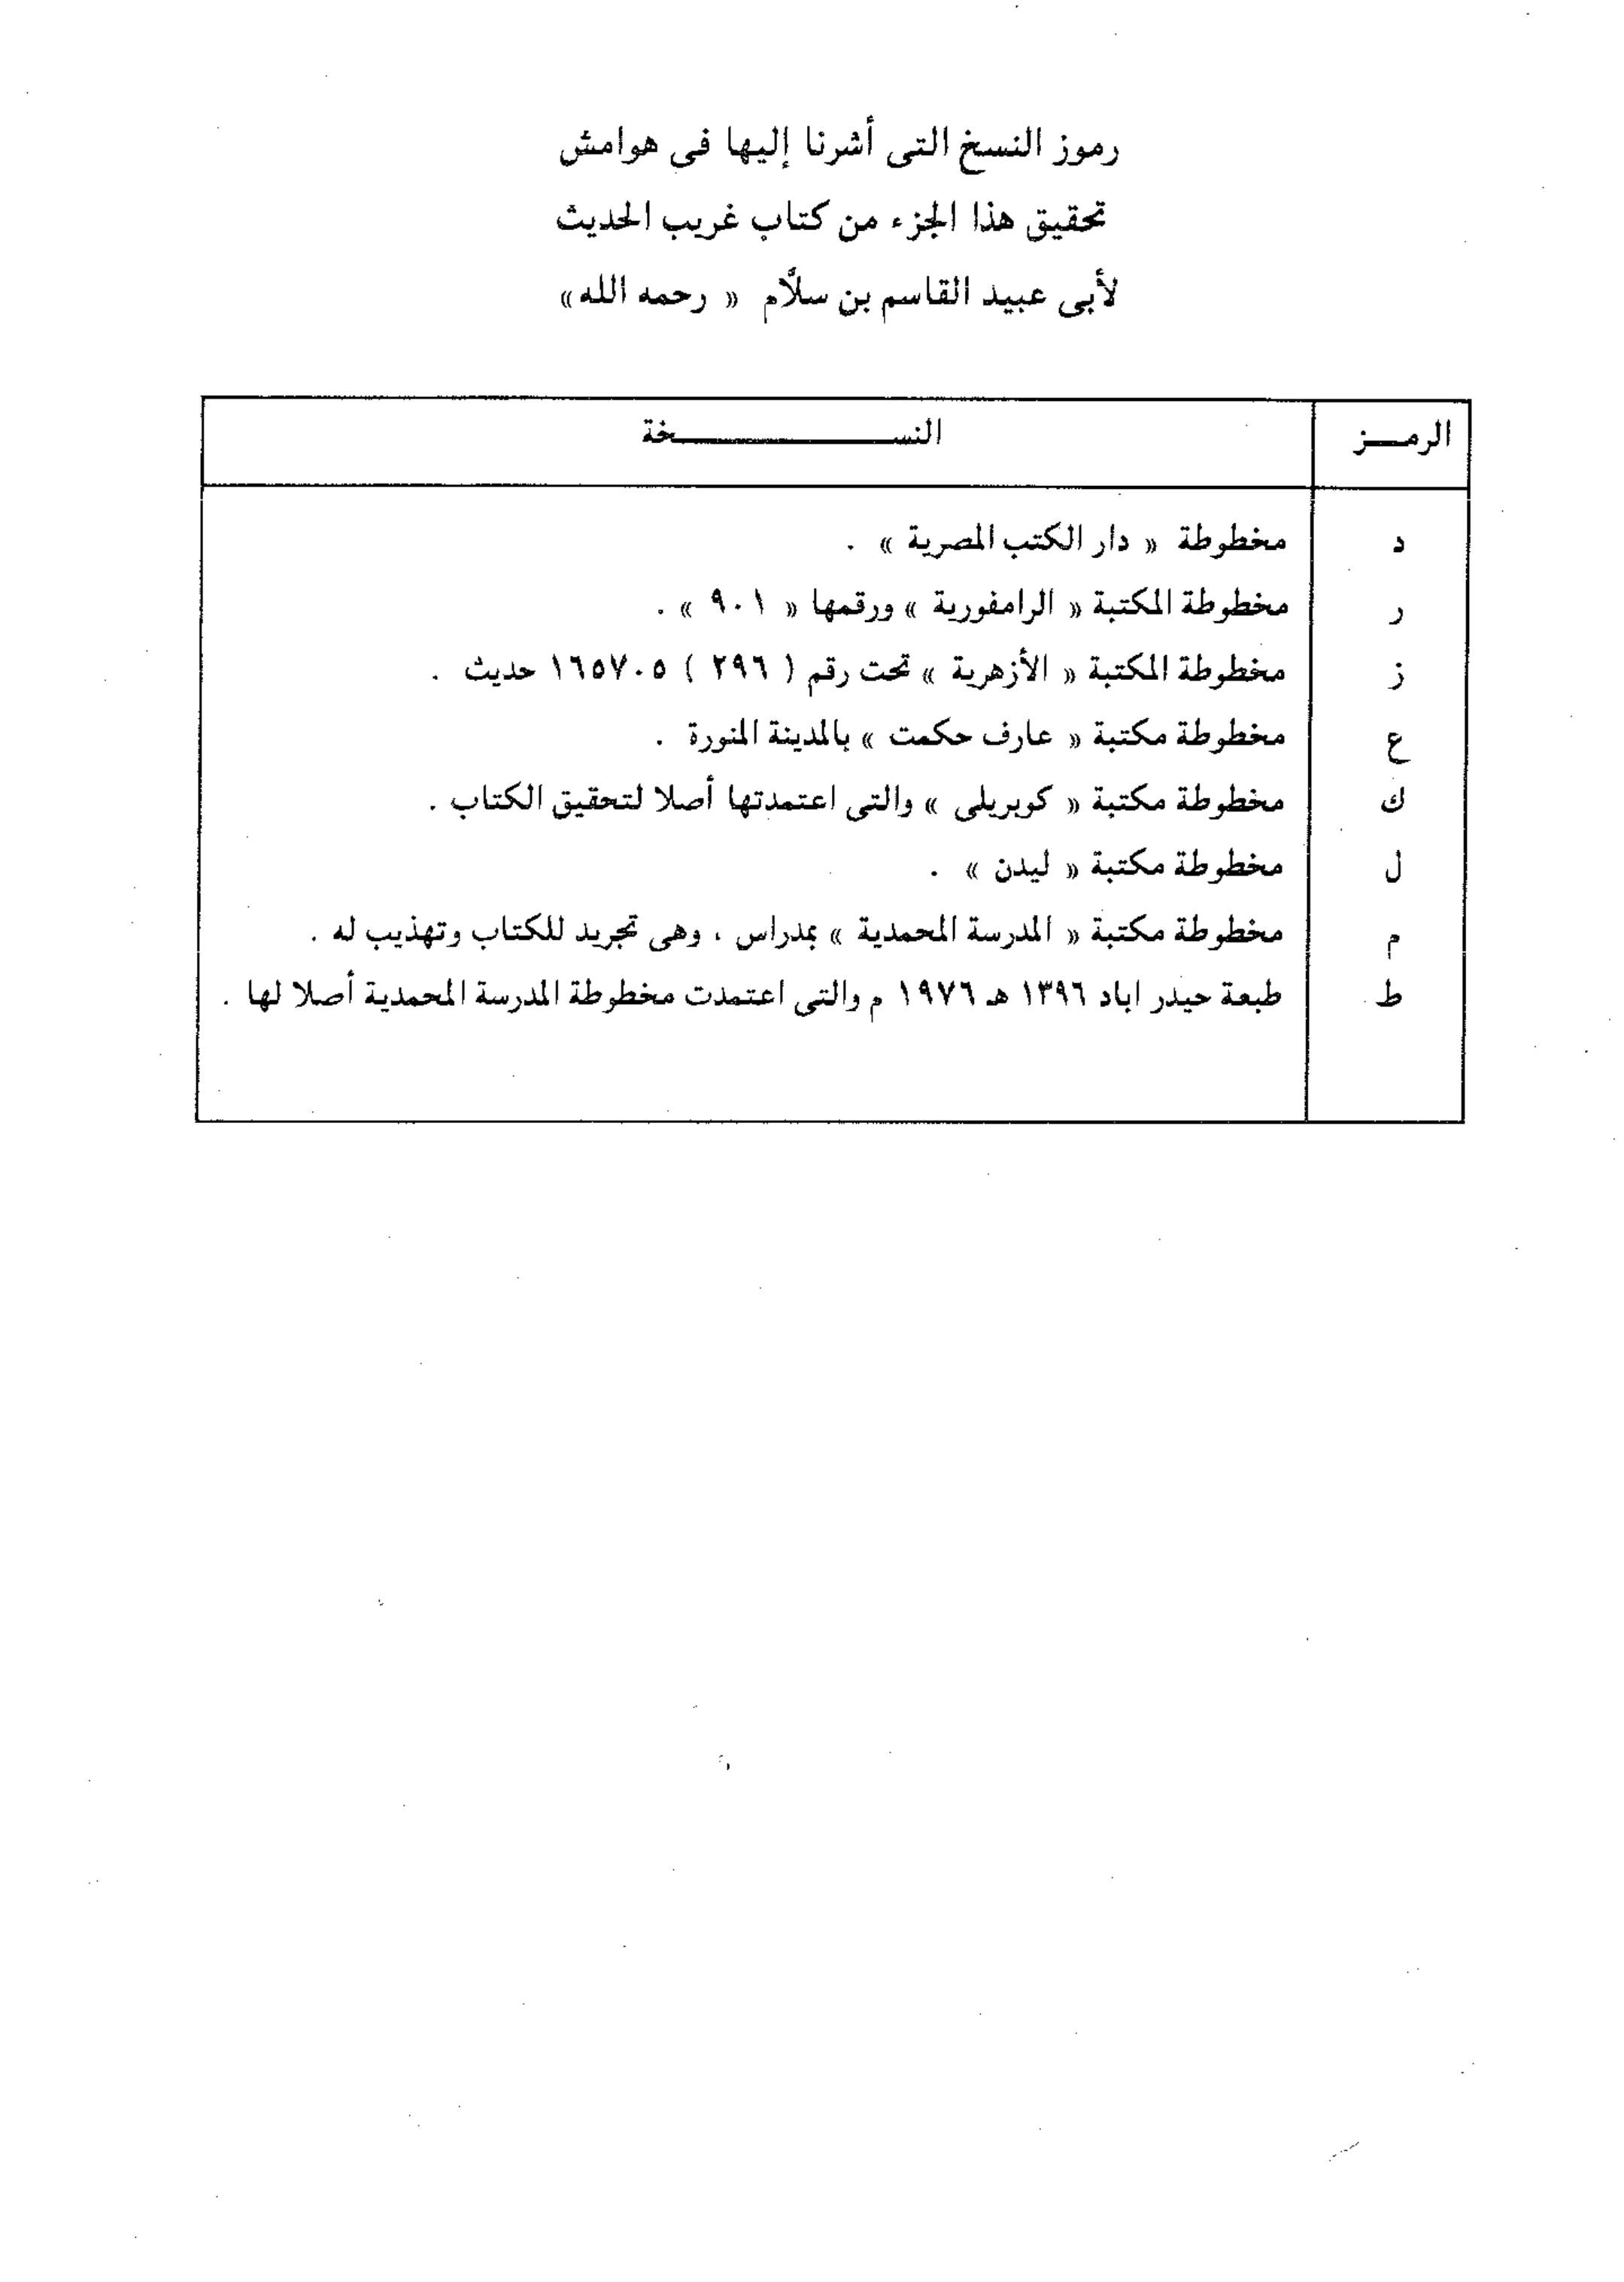 رموز النسخ التى أشرنا إليها فى هوامش
تحقيق هذا الجزء من كتاب غريب الحديث
لأبى عبيد القاسم بن سلاَّم « رحمه الله»
الرمـــز النســـــــــــــــــخة
د مخطوطة « دار الكتب المصرية » .
ر مخطوطة المكتبة « الرامفورية » ورقمها « ٩٠١ » .
ز مخطوطة المكتبة « الأزهرية » تحت رقم ( ٢٩٦ ) ١٦٥٧٠٥ حديث .
ع مخطوطة مكتبة « عارف حكمت » بالمدينة المنورة .
ك مخطوطة مكتبة « كوبريلى » والتى اعتمدتها أصلا لتحقيق الكتاب .
ل مخطوطة مكتبة « ليدن » .
م مخطوطة مكتبة « المدرسة المحمدية » بمدراس ، وهى تجريد للكتاب وتهذيب له .
ط طبعة حيدر اباد ١٣٩٦ هـ ١٩٧٦ م والتى اعتمدت مخطوطة المدرسة المحمدية أصلا لها .